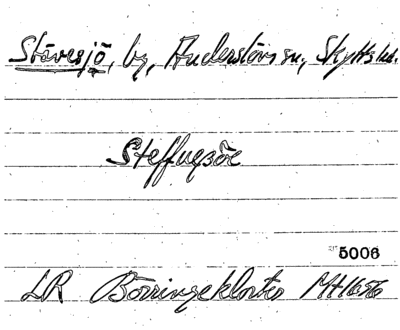 Stävesjö, by, Anderslövs sn, Skytts hd.
Steffuesöe
5006
LR Börringekloster MH 1656